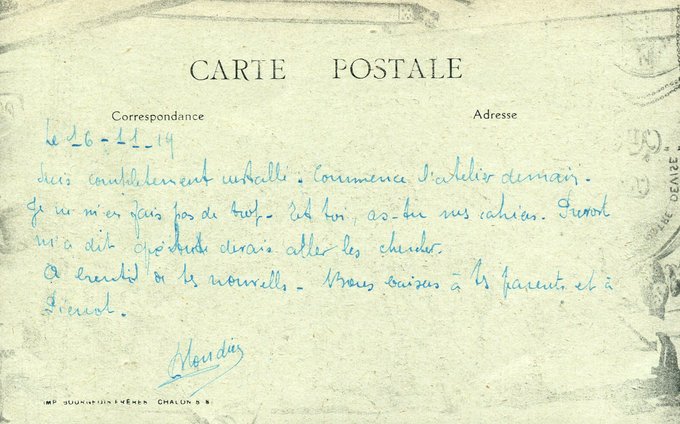 CARTE POSTALE
Correspondance
Adresse
Le 16-11-19
Suis complètement installé. Commence l'atelier demain.
Je ne m'en fais pas de trop. Et toi, as-tu mes cahiers.
m'a dit que devais aller les chercher.
A bientôt de tes nouvelles - Bons baisers à tes parents et à
Pierrot.
IMP BOURGEOIS FRÈRES CHALON S S